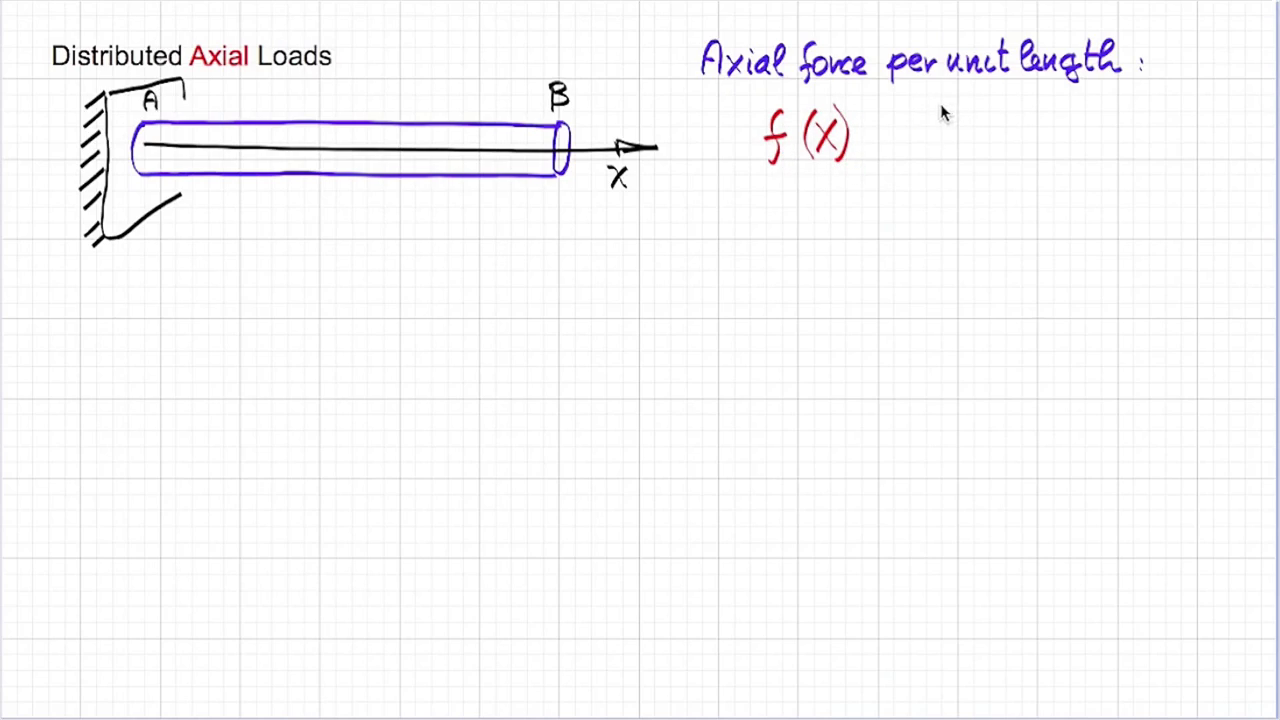 Distributed Axial Loads
Axial force per unit length :
f (x)
A
B
x